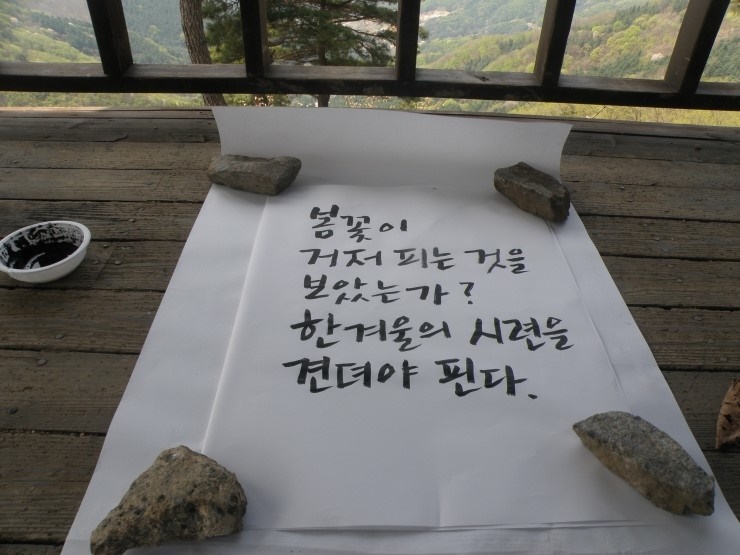 봄꽃이
거저 피는 것을
보았는가?
한겨울의 시련을
견뎌야 핀다.